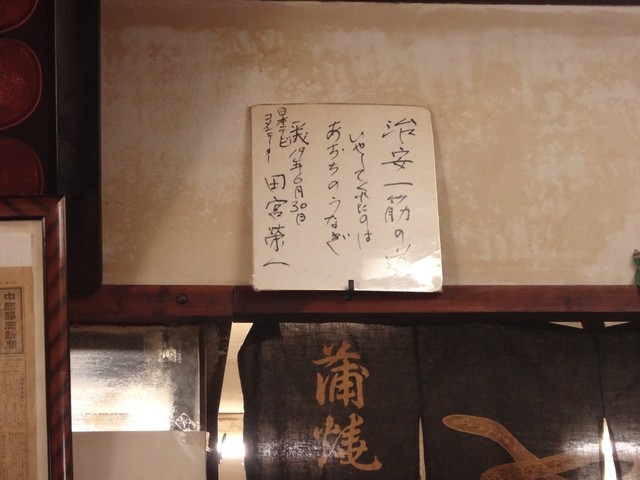 治安一筋の
いやしてくれたのは
あぢちのうなぎ
平成19年6月30日
日本テレビ
コメンテーター
田宮榮一
蒲焼